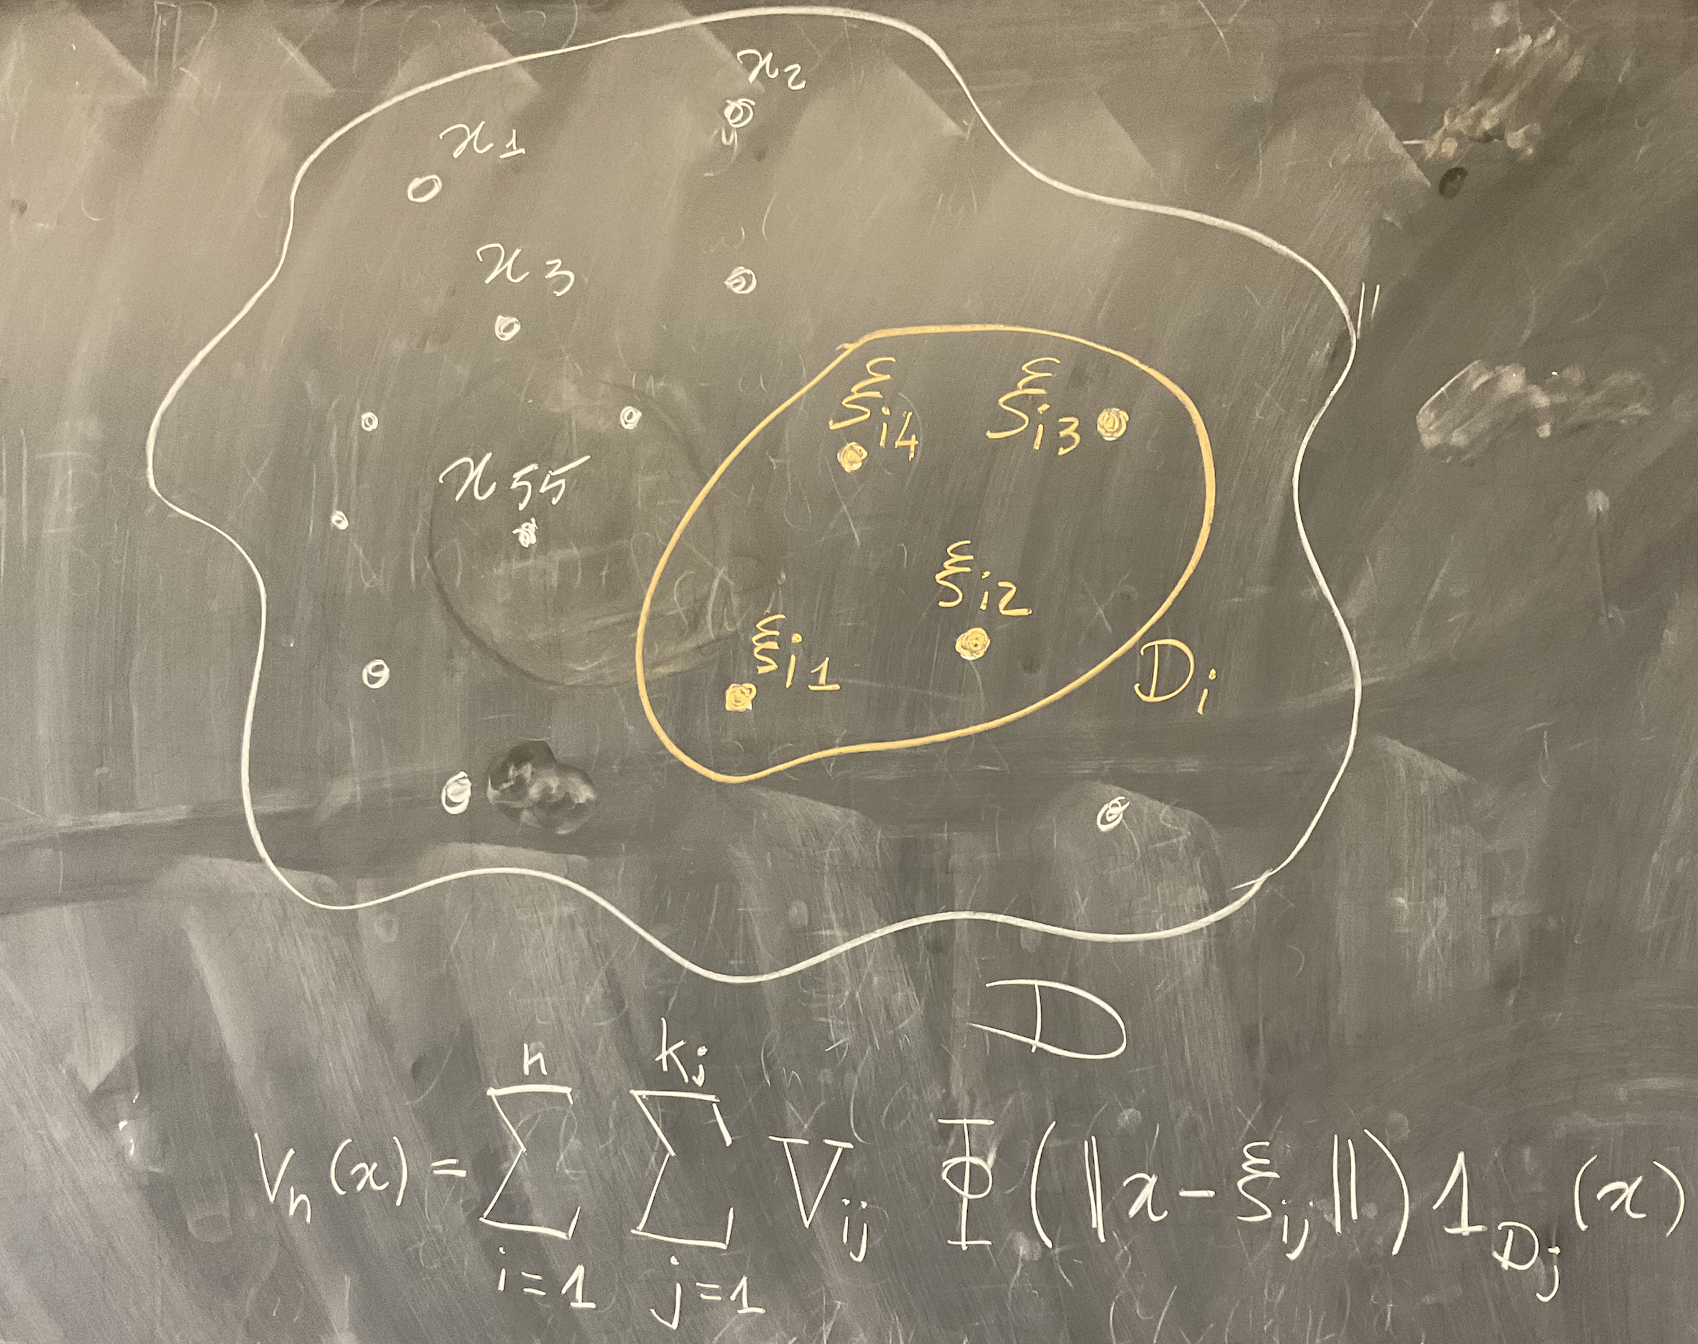 x₂
x₁
x₃
ξᵢ₄ ξᵢ₃
x₅₅
ξᵢ₂
ξᵢ₁
Dᵢ
D
Vₙ(x) = ∑_{i=1}^{n} ∑_{j=1}^{kᵢ} V_{ij} Φ(‖x − ξ_{ij}‖) 1_{D_j}(x)